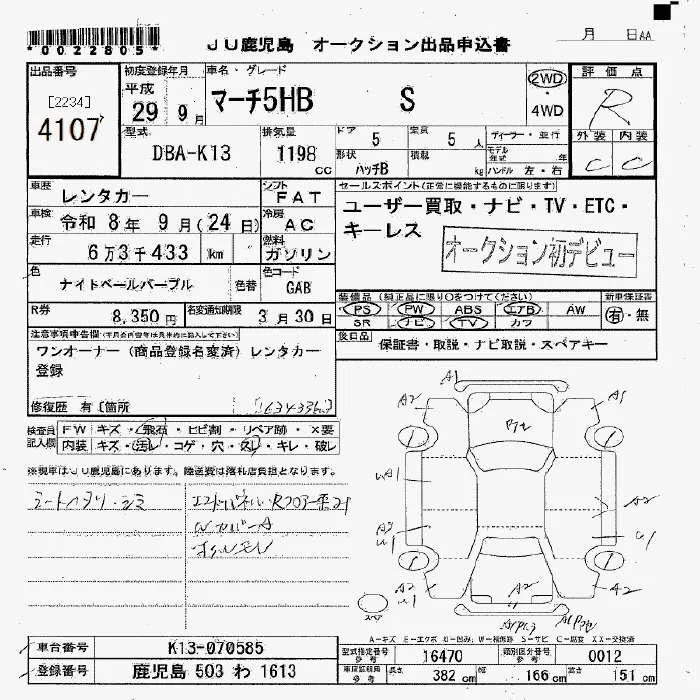 *0022805*
JU鹿児島 オークション出品申込書
月 日AA
出品番号
[2234]
4107
初度登録年月
平成
29 9月
車名・グレード
マーチ5HB S
2WD
・
4WD
評価点
R
型式
DBA-K13
排気量
1198 cc
ドア
5
定員
5 人
ディーラー・並行
形状
ハッチB
積載
kg
モデル年式 年
ハンドル 左・右
外装 内装
C C
車歴
レンタカー
シフト
FAT
セールスポイント(正常に機能するものに限ります)
ユーザー買取・ナビ・TV・ETC・
キーレス
オークション初デビュー
車検
令和 8年 9月(24日)
冷房
AC
走行
6万3千433 km
燃料
ガソリン
色
ナイトベールパープル
色替
色コード
GAB
R券
8,350円
名変通知期限
3月30日
装備品(純正品に限り○をつけてください)
PS PW ABS エアB AW
SR ナビ TV カワ
新車保証書
有・無
注意事項申告欄
ワンオーナー(商品登録名変済)レンタカー
登録
後日品
保証書・取説・ナビ取説・スペアキー
修復歴 有〔箇所
検査員
記入欄
FW キズ・飛石・ヒビ割・リペア跡・×要
内装 キズ・汚レ・コゲ・穴・スレ・キレ・破レ
※現車はJU鹿児島にあります。陸送費は落札店負担となります。
シートヘタリ・シミ
A1
A2
A1
A2
A2
A2
A2
スペア
A-キズ E-エクボ U-凹み W-補修跡 S-サビ C-腐蝕 XX-交換済
車台番号
K13-070585
登録番号
鹿児島 503 わ 1613
型式指定番号
参考
16470
類別区分番号
参考
0012
車両諸元
参考
長さ
382 cm
幅
166 cm
高さ
151 cm